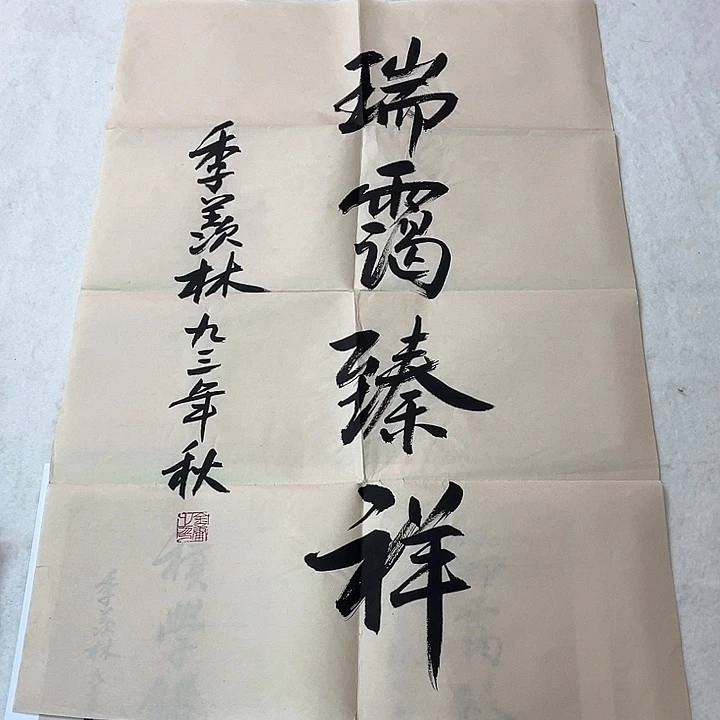 瑞霭臻祥
季羡林九三年秋